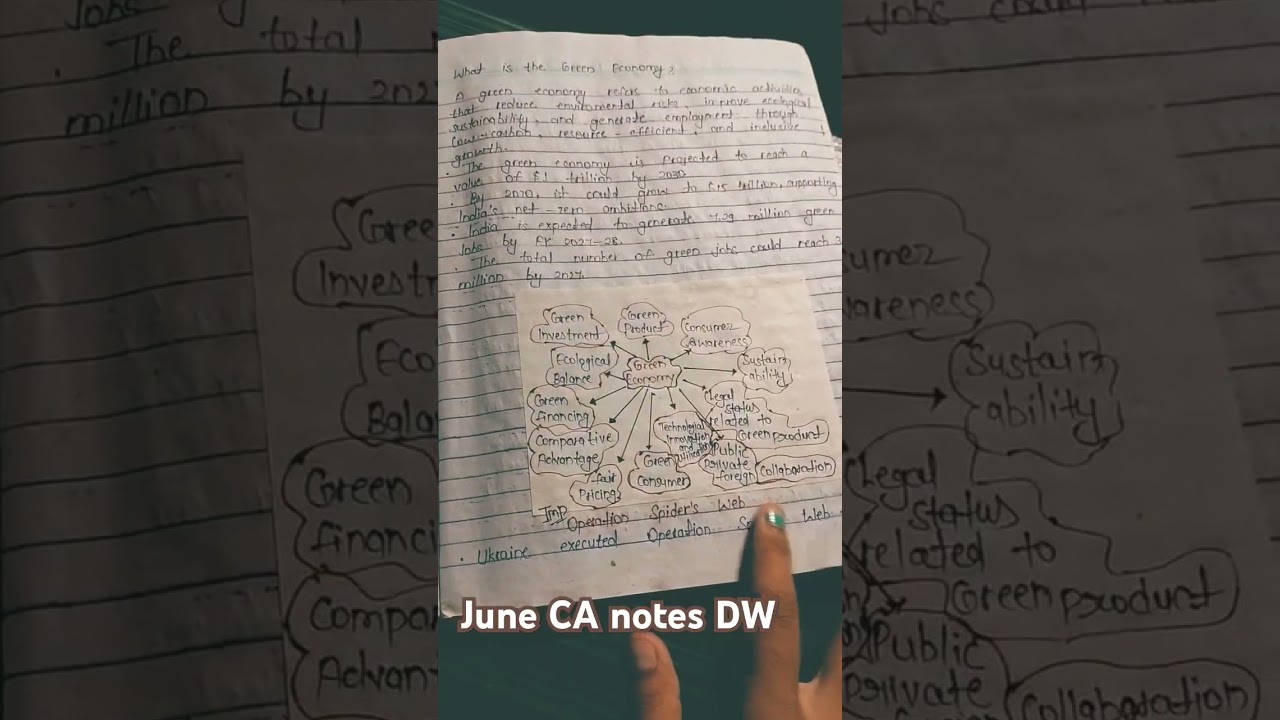 What is the Green Economy?
A green economy refers to economic activities
that reduce environmental risks, improve ecological
sustainability, and generate employment through
low-carbon, resource-efficient, and inclusive
growth.
· The green economy is projected to reach a
value of $1 trillion by 2030
· By 2070, it could grow to $15 trillion, supporting
India's net-zero ambitions.
· India is expected to generate 7.29 million green
Jobs by FY 2027-28.
· The total number of green jobs could reach 3
million by 202
Green Investment
Green Product
Consumer Awareness
Ecological Balance
Green Economy
Sustainability
Green financing
Legal status related to Green product
Comparative Advantage
Technological Innovation and
Public private foreign
Collaboration
Green Consumer
fair Pricing
Imp
Operation Spider's Web
· Ukraine executed Operation Web
June CA notes DW